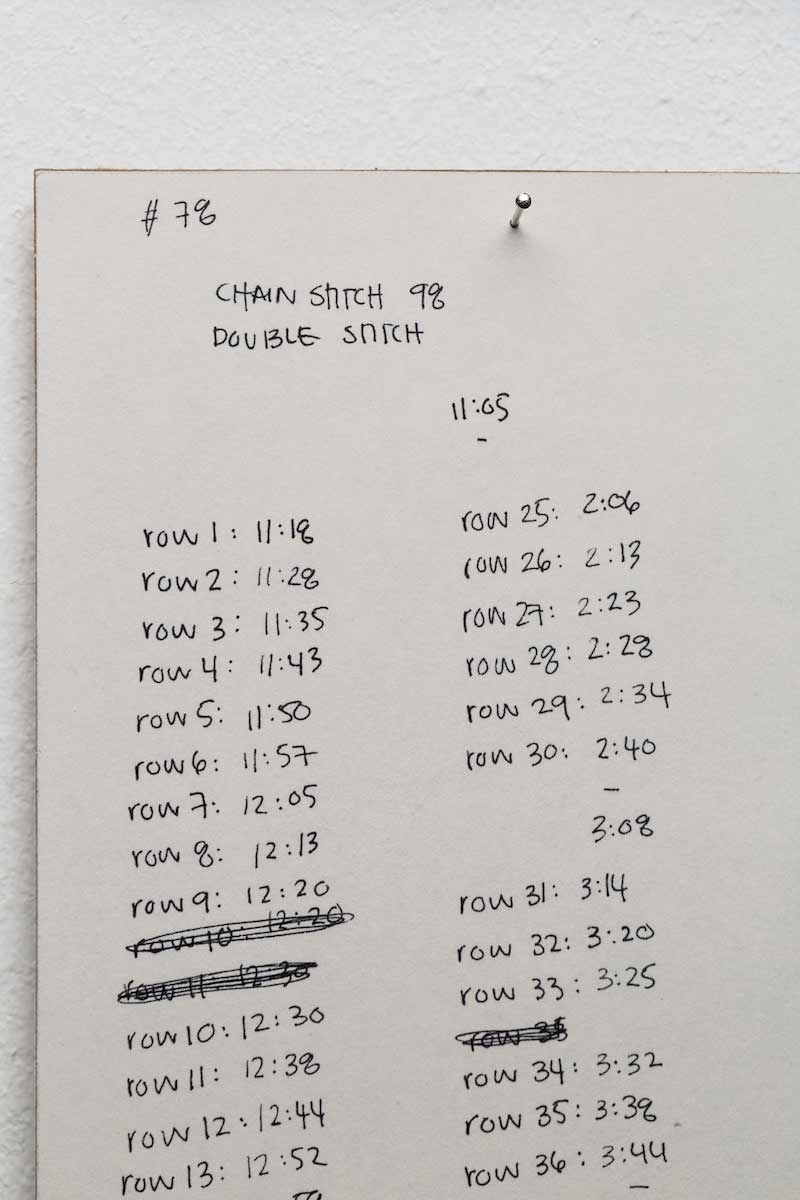 # 78
CHAIN STITCH 98
DOUBLE STITCH
11:05
-
row 1: 11:18
row 2: 11:28
row 3: 11:35
row 4: 11:43
row 5: 11:50
row 6: 11:57
row 7: 12:05
row 8: 12:13
row 9: 12:20
row 10: 12:20
row 11: 12:30
row 10: 12:30
row 11: 12:38
row 12: 12:44
row 13: 12:52
row 25: 2:06
row 26: 2:13
row 27: 2:23
row 28: 2:28
row 29: 2:34
row 30: 2:40
-
3:08
row 31: 3:14
row 32: 3:20
row 33: 3:25
row
row 34: 3:32
row 35: 3:38
row 36: 3:44
-